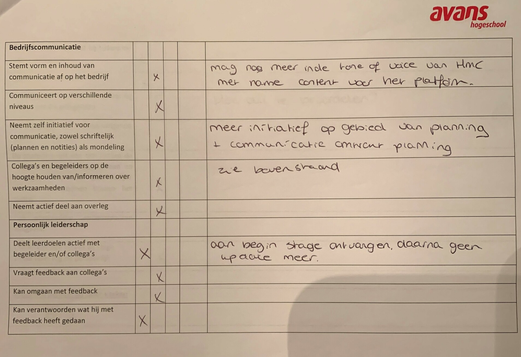 avans
hogeschool
Bedrijfscommunicatie
Stemt vorm en inhoud van
communicatie af op het bedrijf
x
mag nog meer in de tone of voice van HMC
met name content voor het platform.
Communiceert op verschillende
niveaus
x
Neemt zelf initiatief voor
communicatie, zowel schriftelijk
(plannen en notities) als mondeling
x
meer initiatief op gebied van planning
+ communicatie omtrent planning
Collega's en begeleiders op de
hoogte houden van/informeren over
werkzaamheden
x
zie bovenstaand
Neemt actief deel aan overleg
x
Persoonlijk leiderschap
Deelt leerdoelen actief met
begeleider en/of collega's
x
aan begin stage ontvangen, daarna geen
update meer.
Vraagt feedback aan collega's
x
Kan omgaan met feedback
x
Kan verantwoorden wat hij met
feedback heeft gedaan
x